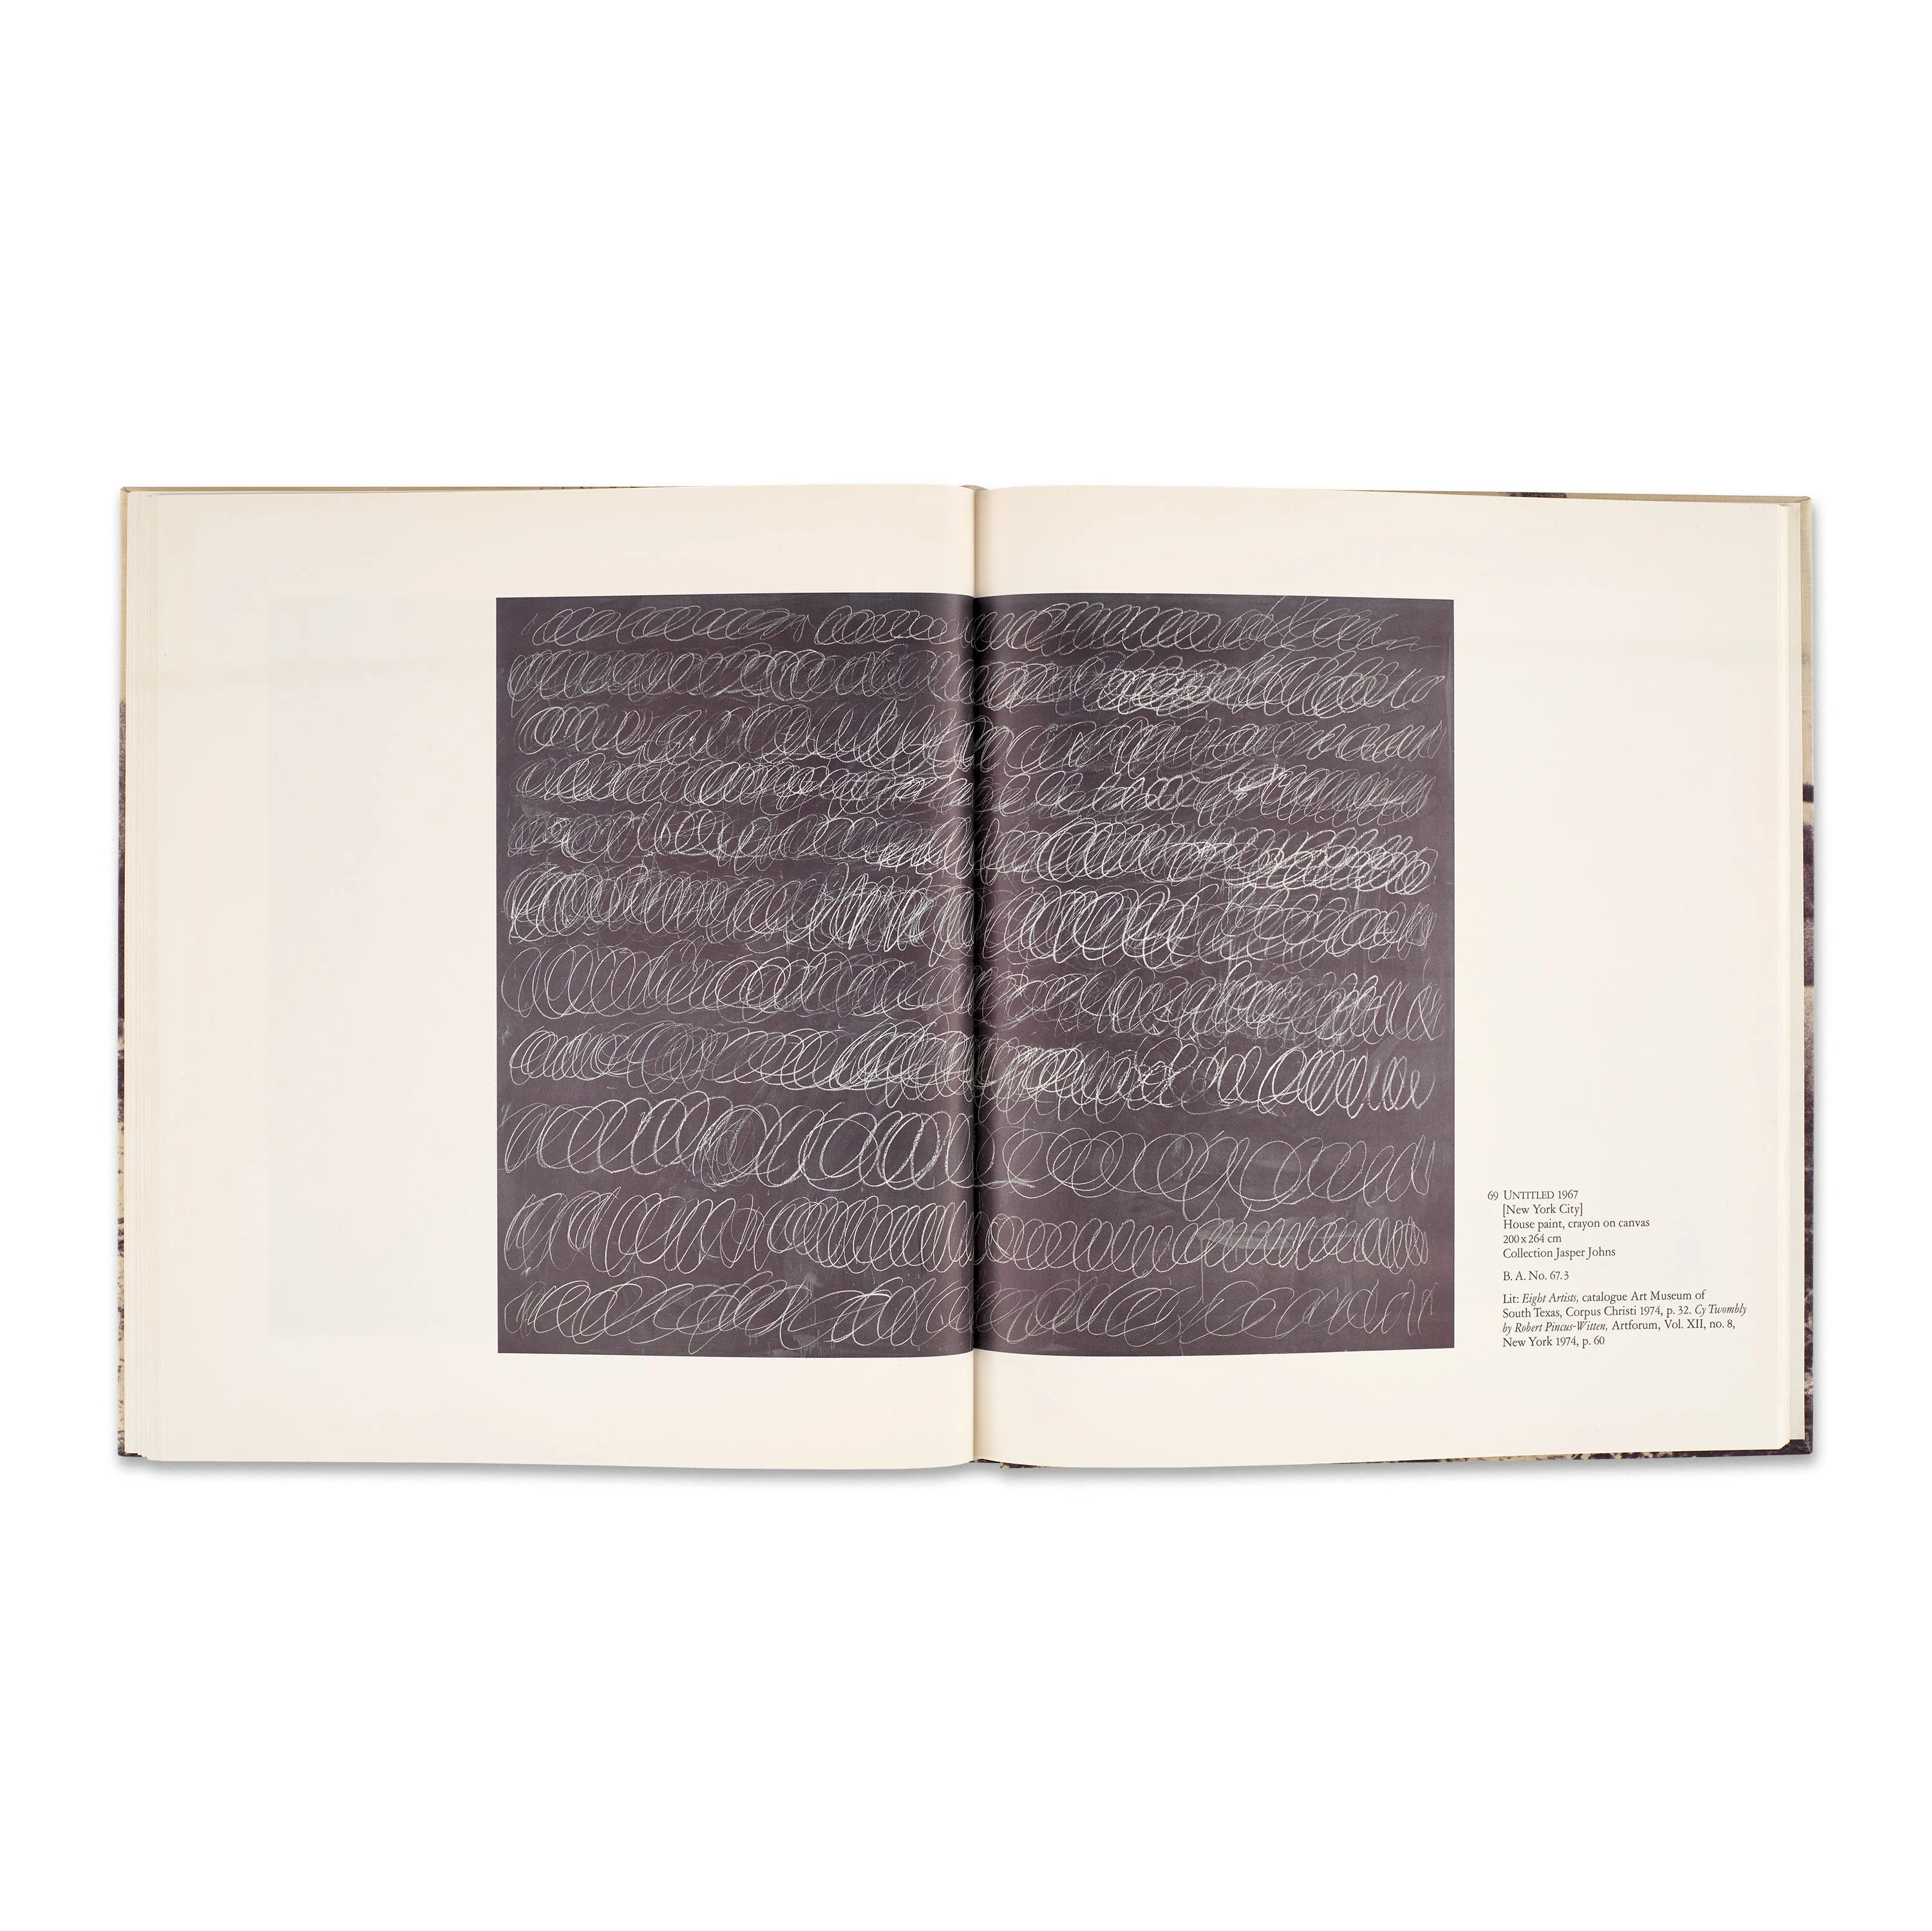 69 UNTITLED 1967
[New York City]
House paint, crayon on canvas
200 x 264 cm
Collection Jasper Johns
B. A. No. 67.3
Lit: Eight Artists, catalogue Art Museum of
South Texas, Corpus Christi 1974, p. 32. Cy Twombly
by Robert Pincus-Witten, Artforum, Vol. XII, no. 8,
New York 1974, p. 60